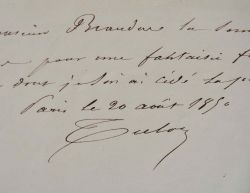 Monsieur Brandus la som
pour une fantaisie
dont je lui ai cédé la p
Paris le 20 août 185